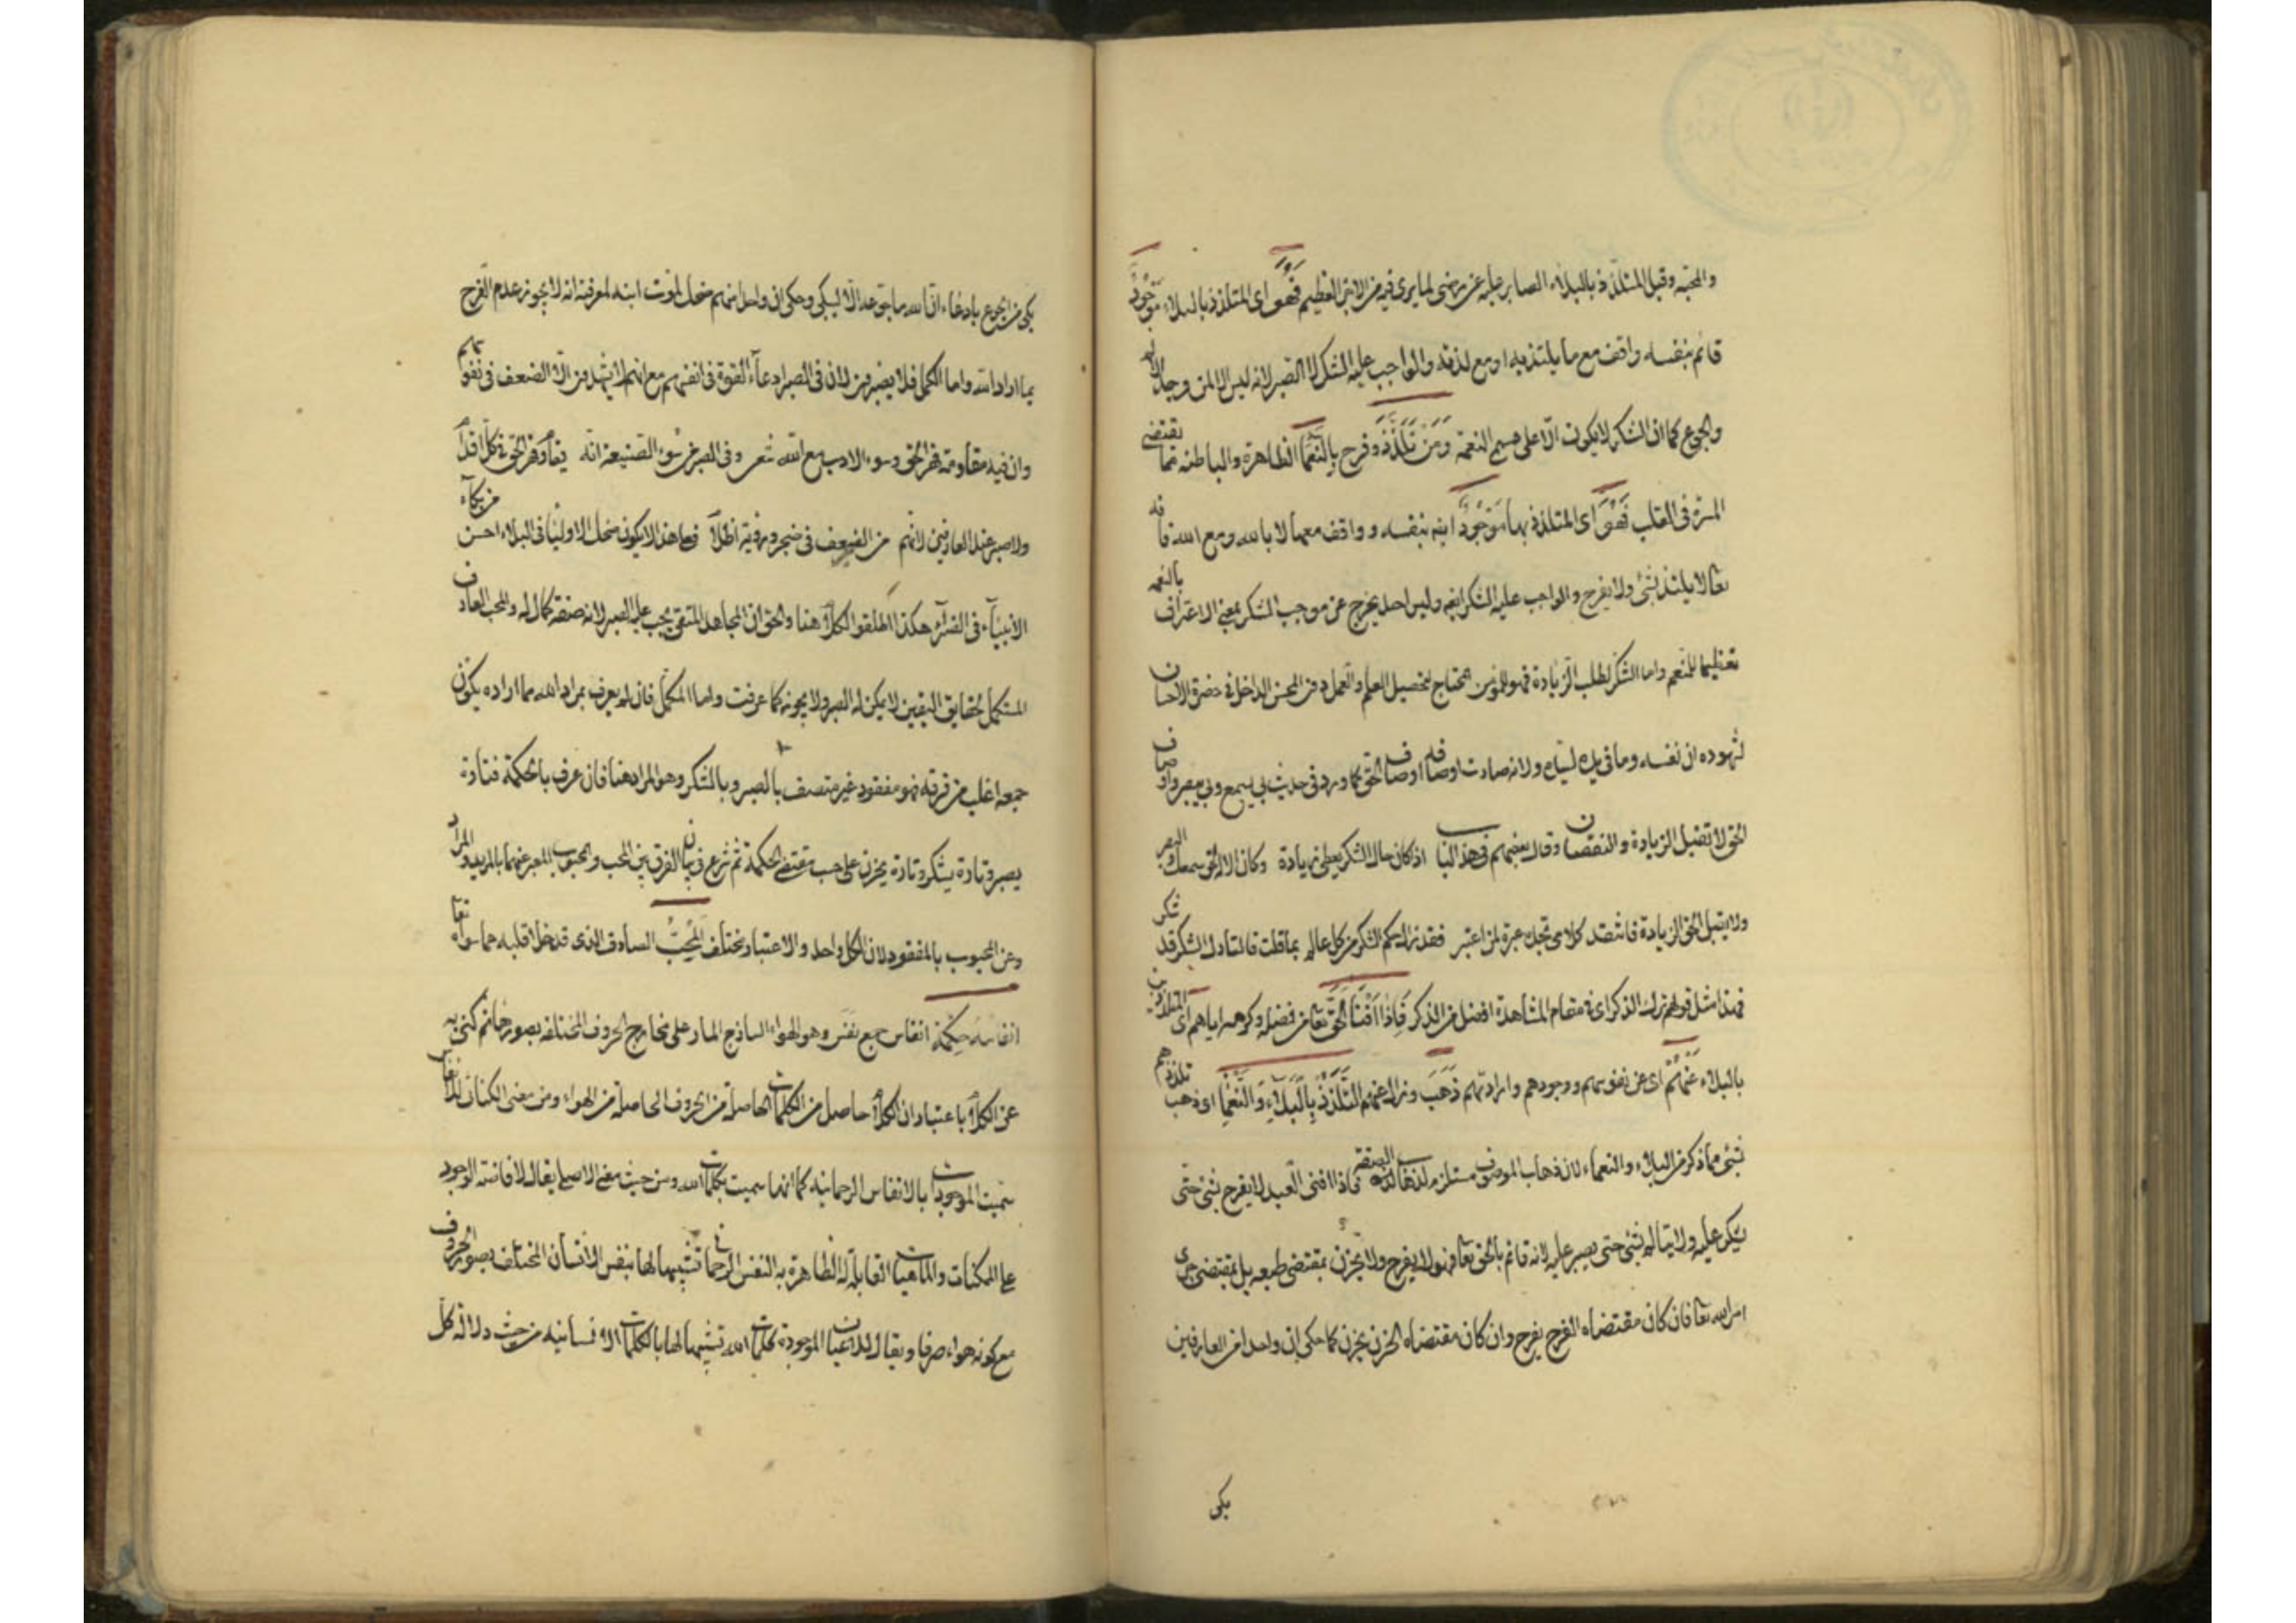 والمحبة وقيل المتلذذ بالبلاء الصابر عليه عن رضى لما يرى فيه من الاجر العظيم فهو اى المتلذذ بالبلاء موجود
قائم بنفسه واقف مع ما يلتذ به او مع لذته والواجب عليه الشكر لا الصبر لانه ليس الا لمن وجد الالم
والجزع كما ان الشكر لا يكون الا على النعمة ومن تلذذ وفرح بالنعما الظاهرة والباطنة مما يقتضى
المسرة فى القلب فهو اى المتلذذ بها موجود ايضا بنفسه وواقف معها لا بالله ومع الله فانه
تعالى لا يلتذ بشئ ولا يفرح والواجب عليه الشكر ايضا وليس احد يخرج عن موجب الشكر بمعنى الاعتراف بالنعمة
تعظيما للمنعم واما الشكر لطلب الزيادة فهو للمؤمن المحتاج لتحصيل العلم والعمل دون المحسن الداخل فى حضرة الاحسان
لشهوده ان نفسه وما فى يده لسيده ولانه صارت اوصافه اوصاف الحق كما ورد فى حديث بى يسمع وبى يبصر واوصاف
الحق لا تقبل الزيادة والنقصان وقال بعضهم فى هذا الباب اذا كان حال الشكر يعطى زيادة وكان الاله الحق سمعك والبصر
ولا يقبل الحق الزيادة فانتقد كلامى تجد عبرة لمن اعتبر فقد زال حكم الشكر من كل عالم بما قلت فالتارك الشكر قد شكر
فهذا مثل قولهم ترك الذكر اى فى مقام المشاهدة افضل من الذكر فاذا افنا الحق تعالى من فضله وكرمه اياهم اى المتلذذين
بالبلاء عنهم اى عن نفوسهم ووجودهم وارادتهم ذهب وزال عنهم التلذذ بالبلاء والنعما اى ذهب تلذذهم
بشئ مما ذكر من البلاء والنعماء لان ذهاب الموصوف مستلزم لذهاب الصفة فاذا افنى العبد لا يفرح بشئ حتى
يشكر عليه ولا يتألم بشئ حتى يصبر عليه لانه قائم بالحق تعالى فهو لا يفرح ولا يحزن بمقتضى طبعه بل بمقتضى جرى
امر الله تعالى فان كان مقتضاه الفرح يفرح وان كان مقتضاه الحزن يحزن كما حكى ان واحدا من العارفين
بكى
بكى من الجوع بادعاء ان الله ما جوعه الا ليبكى وحكى ان واحدا منهم ضحك لموت ابنه لمعرفته انه لا يجوز عدم الفرح
بما اراد الله واما الكمل فلا يصبرون لان فى الصبر ادعاء القوة فى انفسهم مع انهم لا يشهدون الا الضعف فى نفوسهم
وان فيه مقاومة قهر الحق وسوء الادب مع الله شعر وفى الصبر سوء الصنيعة انه يقاوم قهر الحق فى كل اقدام
ولا صبر عند العارفين لانهم من الضعف فى ضجر ورؤية اظلام فعلى هذا لا يكون ضحك الاولياء فى البلاء احسن من بكاء
الانبياء فى الضراء هكذا اطلقوا الكلام هنا والحق ان المجاهد المتقى يجب عليه الصبر لانه صفة كمال له والمحب العارف
المستكمل بحقايق اليقين لا يمكن له الصبر ولا يجوز كما عرفت واما المكمل فان لم يعرف بمراد الله مما اراده يكون
جمعه اغلب من فرقه فهو مفقود غير متصف بالصبر وبالشكر وهو المراد هنا فان عرف بالحكمة فتارة
يصبر وتارة يشكر وتارة يحزن على حسب مقتضى الحكمة ثم شرع فى بيان الفرق بين المحب والمحبوب المعبر عنهما بالمريد والمراد
وعن المحبوب بالمفقود لان الكل واحد والاعتبار مختلف المحب الصادق الذى قد خلا قلبه عما سواه تعالى
انفاسه حكمة انفاس جمع نفس وهو الهواء الساذج المار على مخارج الحروف المختلفة بصورها ثم كنى به
عن الكلام باعتبار ان الكلام حاصل من الكلمات الحاصلة من الحروف الحاصلة من الهواء ومن معنى الكناية للانفاس
سميت الموجودات بالانفاس الرحمانية كما انها سميت بكلمات الله ومن حيث معنى الاصلى يقال لافاضة الوجود
على الممكنات والماهيات القابلة له الظاهرة به النفس الرحمانى تشبيها لها بنفس الانسان المختلف بصور الحروف
مع كونه هواء صرفا ويقال للاعيان الموجودة كلمات الله تشبيها لها بالكلمات الانسانية من حيث دلالة كل